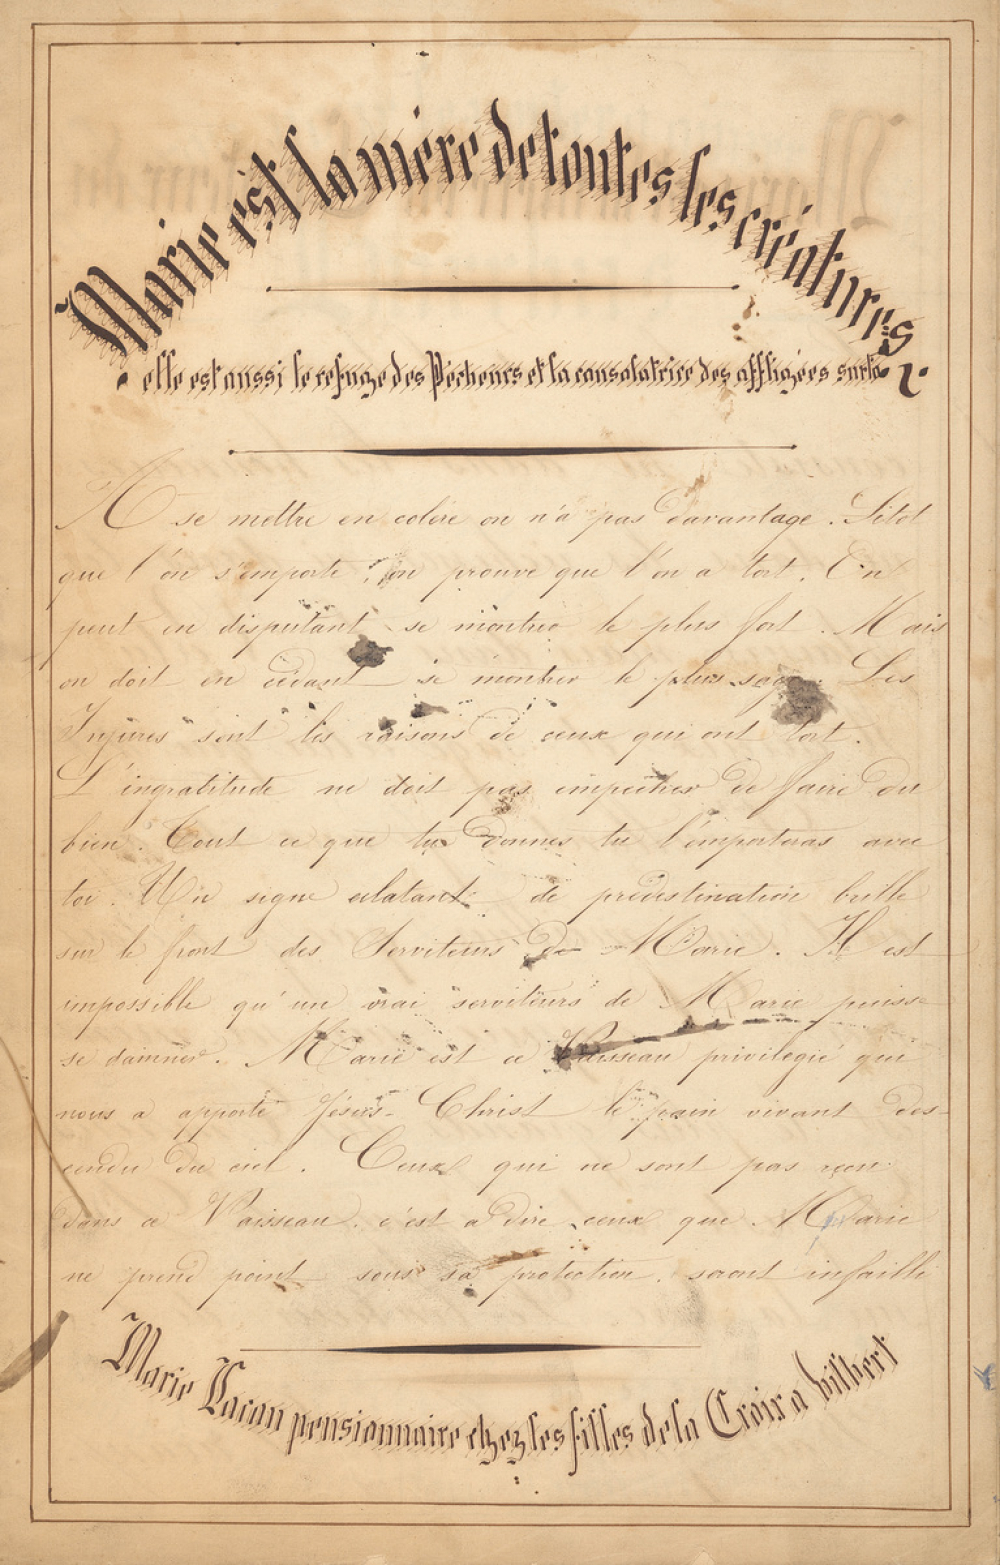 Marie est la mère de toutes les créatures
elle est aussi le refuge des Pécheurs et la consolatrice des affligées sur la
A se mettre en colère on n'a pas davantage. Sitot
que l'on s'emporte, on prouve que l'on a tort. On
peut en disputant se montrer le plus fort. Mais
on doit en cédant se montrer le plus sage. Les
Injures sont les raisons de ceux qui ont tort.
L'ingratitude ne doit pas empêcher de faire du
bien. Tout ce que tu donnes tu l'emporteras avec
toi. Un signe eclatant de prédestination brille
sur le front des Serviteurs de Marie. Il est
impossible qu'un vrai serviteurs de Marie puisse
se damner. Marie est ce Vaisseau privilegié qui
nous a apporté Jésus-Christ le pain vivant des-
cendu du ciel. Ceux qui ne sont pas reçu
dans ce Vaisseau. c'est a dire ceux que Marie
ne prend point sous sa protection. seront infailli
Marie Lacan pensionnaire chez les filles de la Croix a